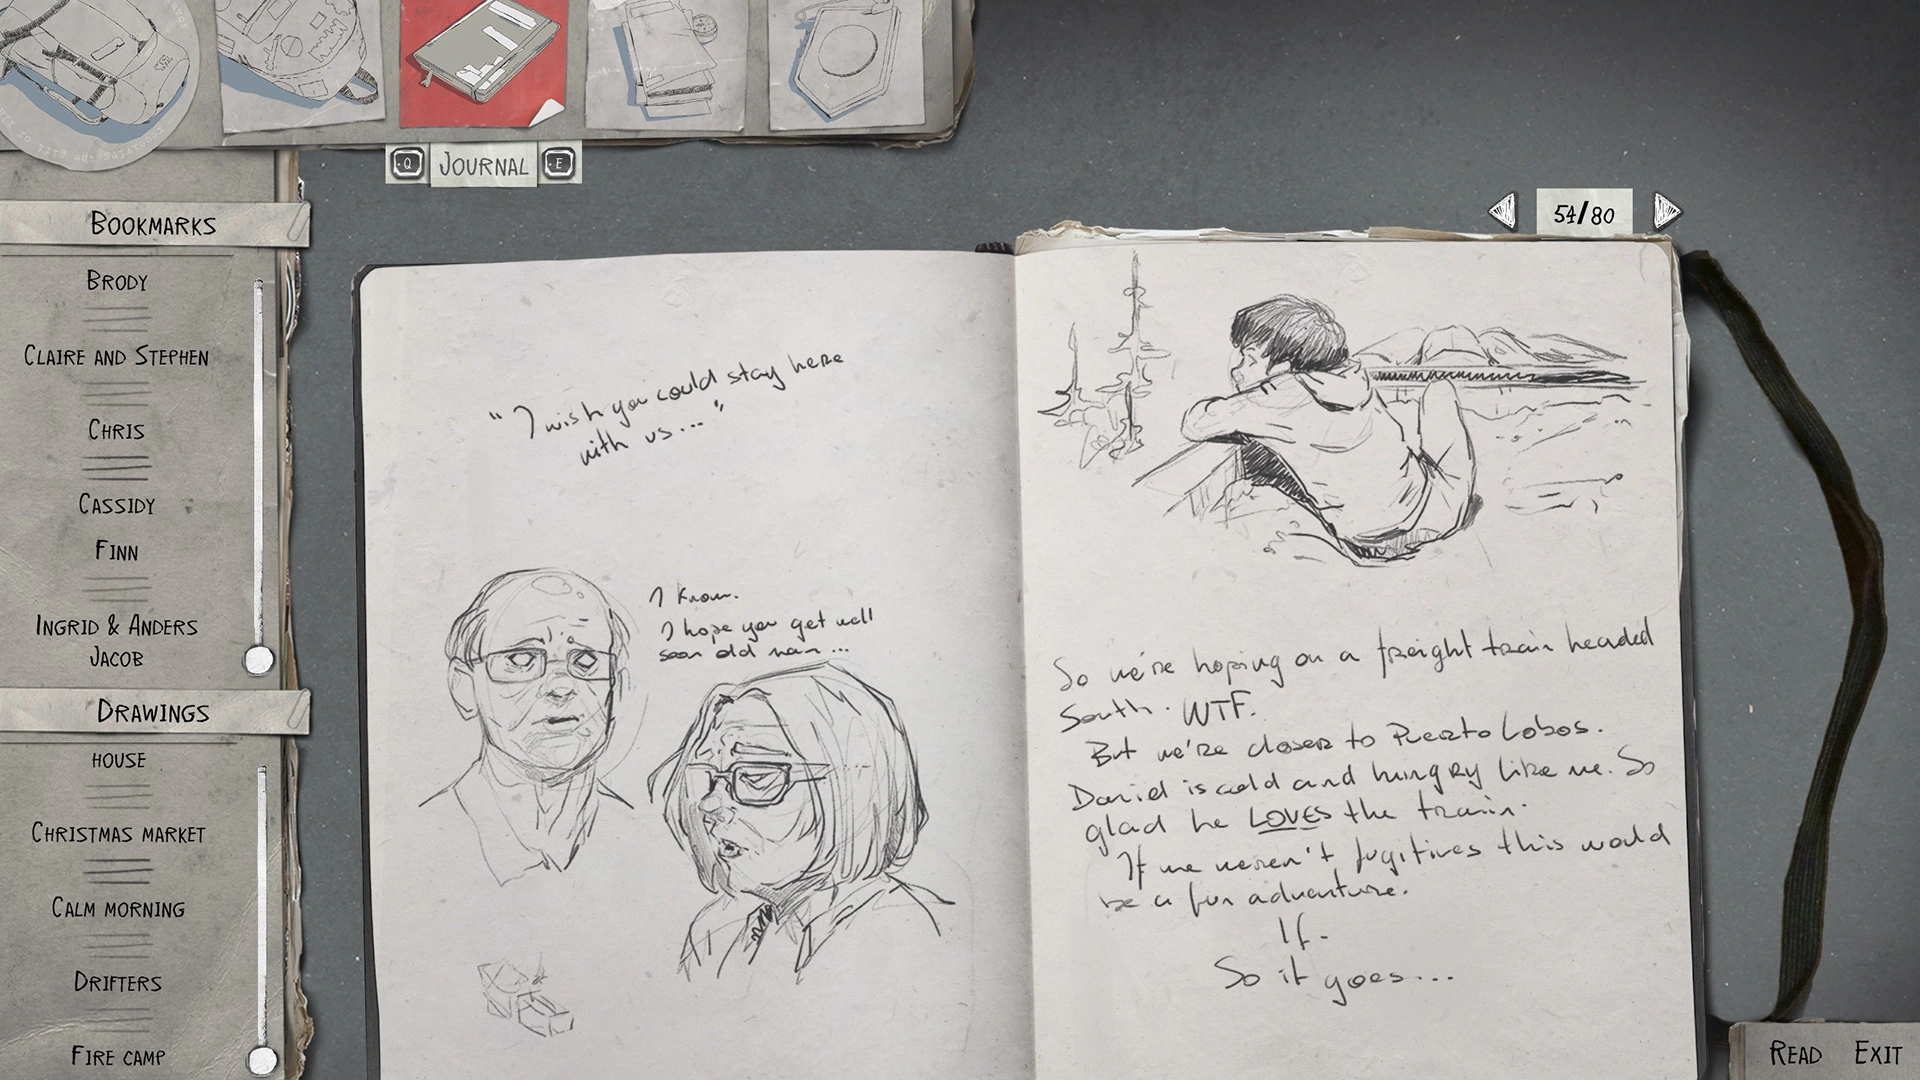 Q JOURNAL E
54/80
BOOKMARKS
BRODY
CLAIRE AND STEPHEN
CHRIS
CASSIDY
FINN
INGRID & ANDERS
JACOB
DRAWINGS
HOUSE
CHRISTMAS MARKET
CALM MORNING
DRIFTERS
FIRE CAMP
"I wish you could stay here
with us..."
I know.
I hope you get well
soon old man...
So we're hoping on a freight train headed
South. WTF.
But we're closer to Puerto Lobos.
Daniel is cold and hungry like me. So
glad he LOVES the train.
If we weren't fugitives this would
be a fun adventure.
If.
So it goes...
READ EXIT